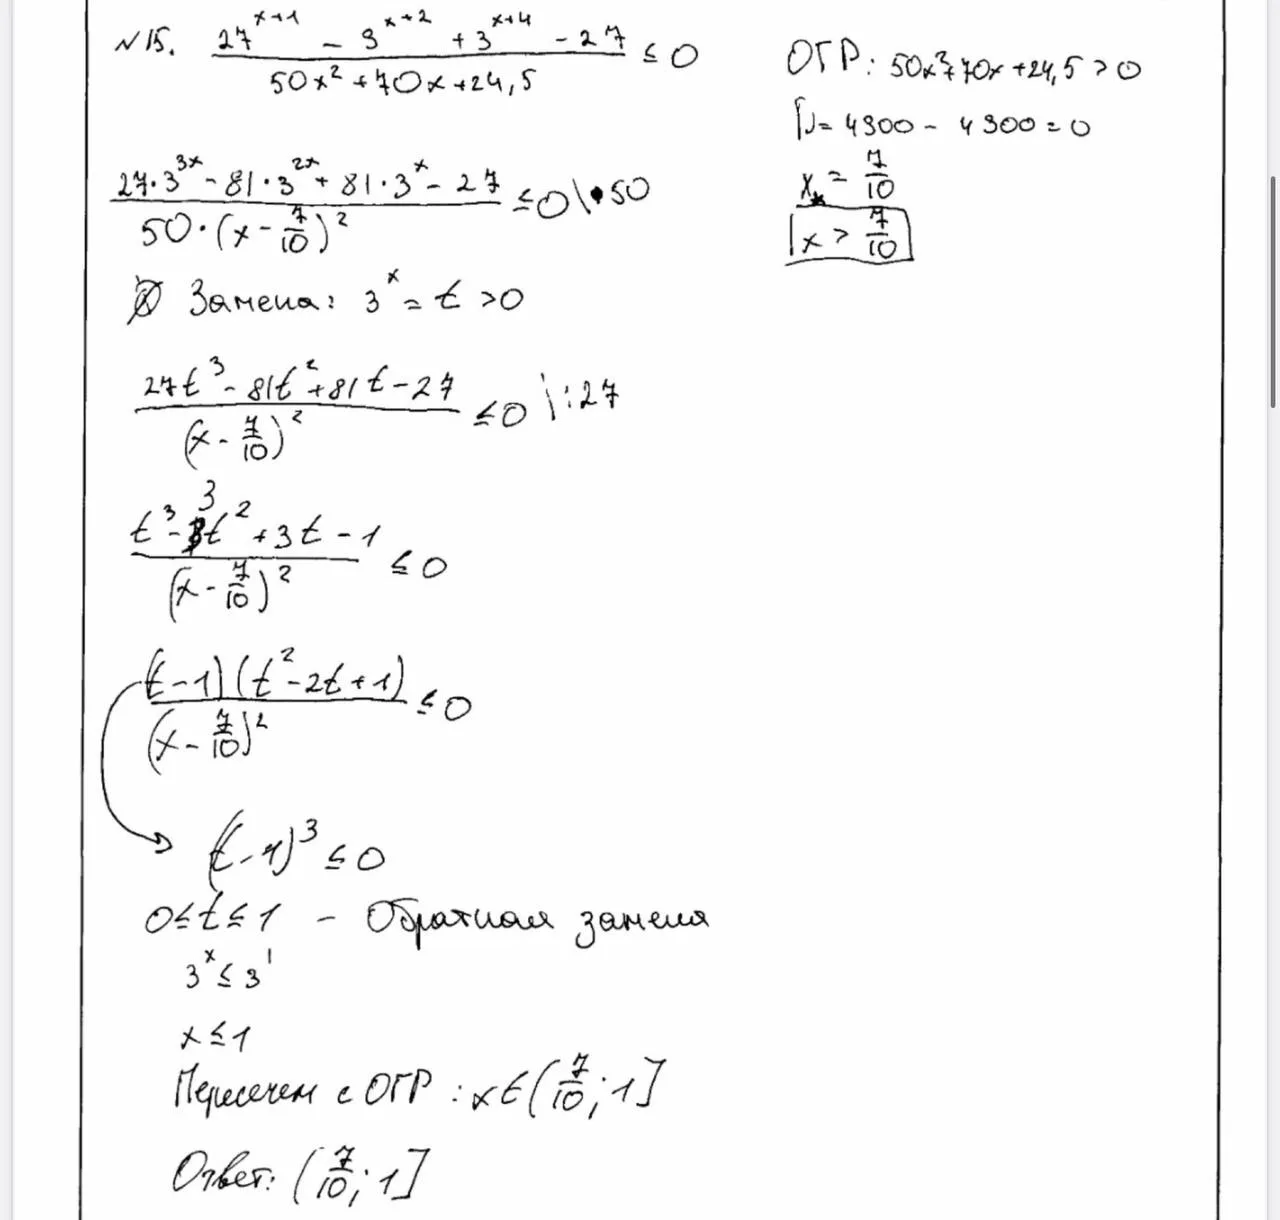 N15. (27^(x+1) - 9^(x+2) + 3^(x+4) - 27)/(50x² + 70x + 24,5) ≤ 0
ОГР: 50x² + 70x + 24,5 > 0
D = 4900 - 4900 = 0
x* = 7/10
x > 7/10
(27·3^(3x) - 81·3^(2x) + 81·3^x - 27)/(50·(x - 7/10)²) ≤ 0 \·50
Замена: 3^x = t > 0
(27t³ - 81t² + 81t - 27)/((x - 7/10)²) ≤ 0 \:27
(t³ - 3t² + 3t - 1)/((x - 7/10)²) ≤ 0
((t - 1)(t² - 2t + 1))/((x - 7/10)²) ≤ 0
(t - 1)³ ≤ 0
0 ≤ t ≤ 1 - Обратная замена
3^x ≤ 3^1
x ≤ 1
Пересечем с ОГР: x ∈ (7/10; 1]
Ответ: (7/10; 1]